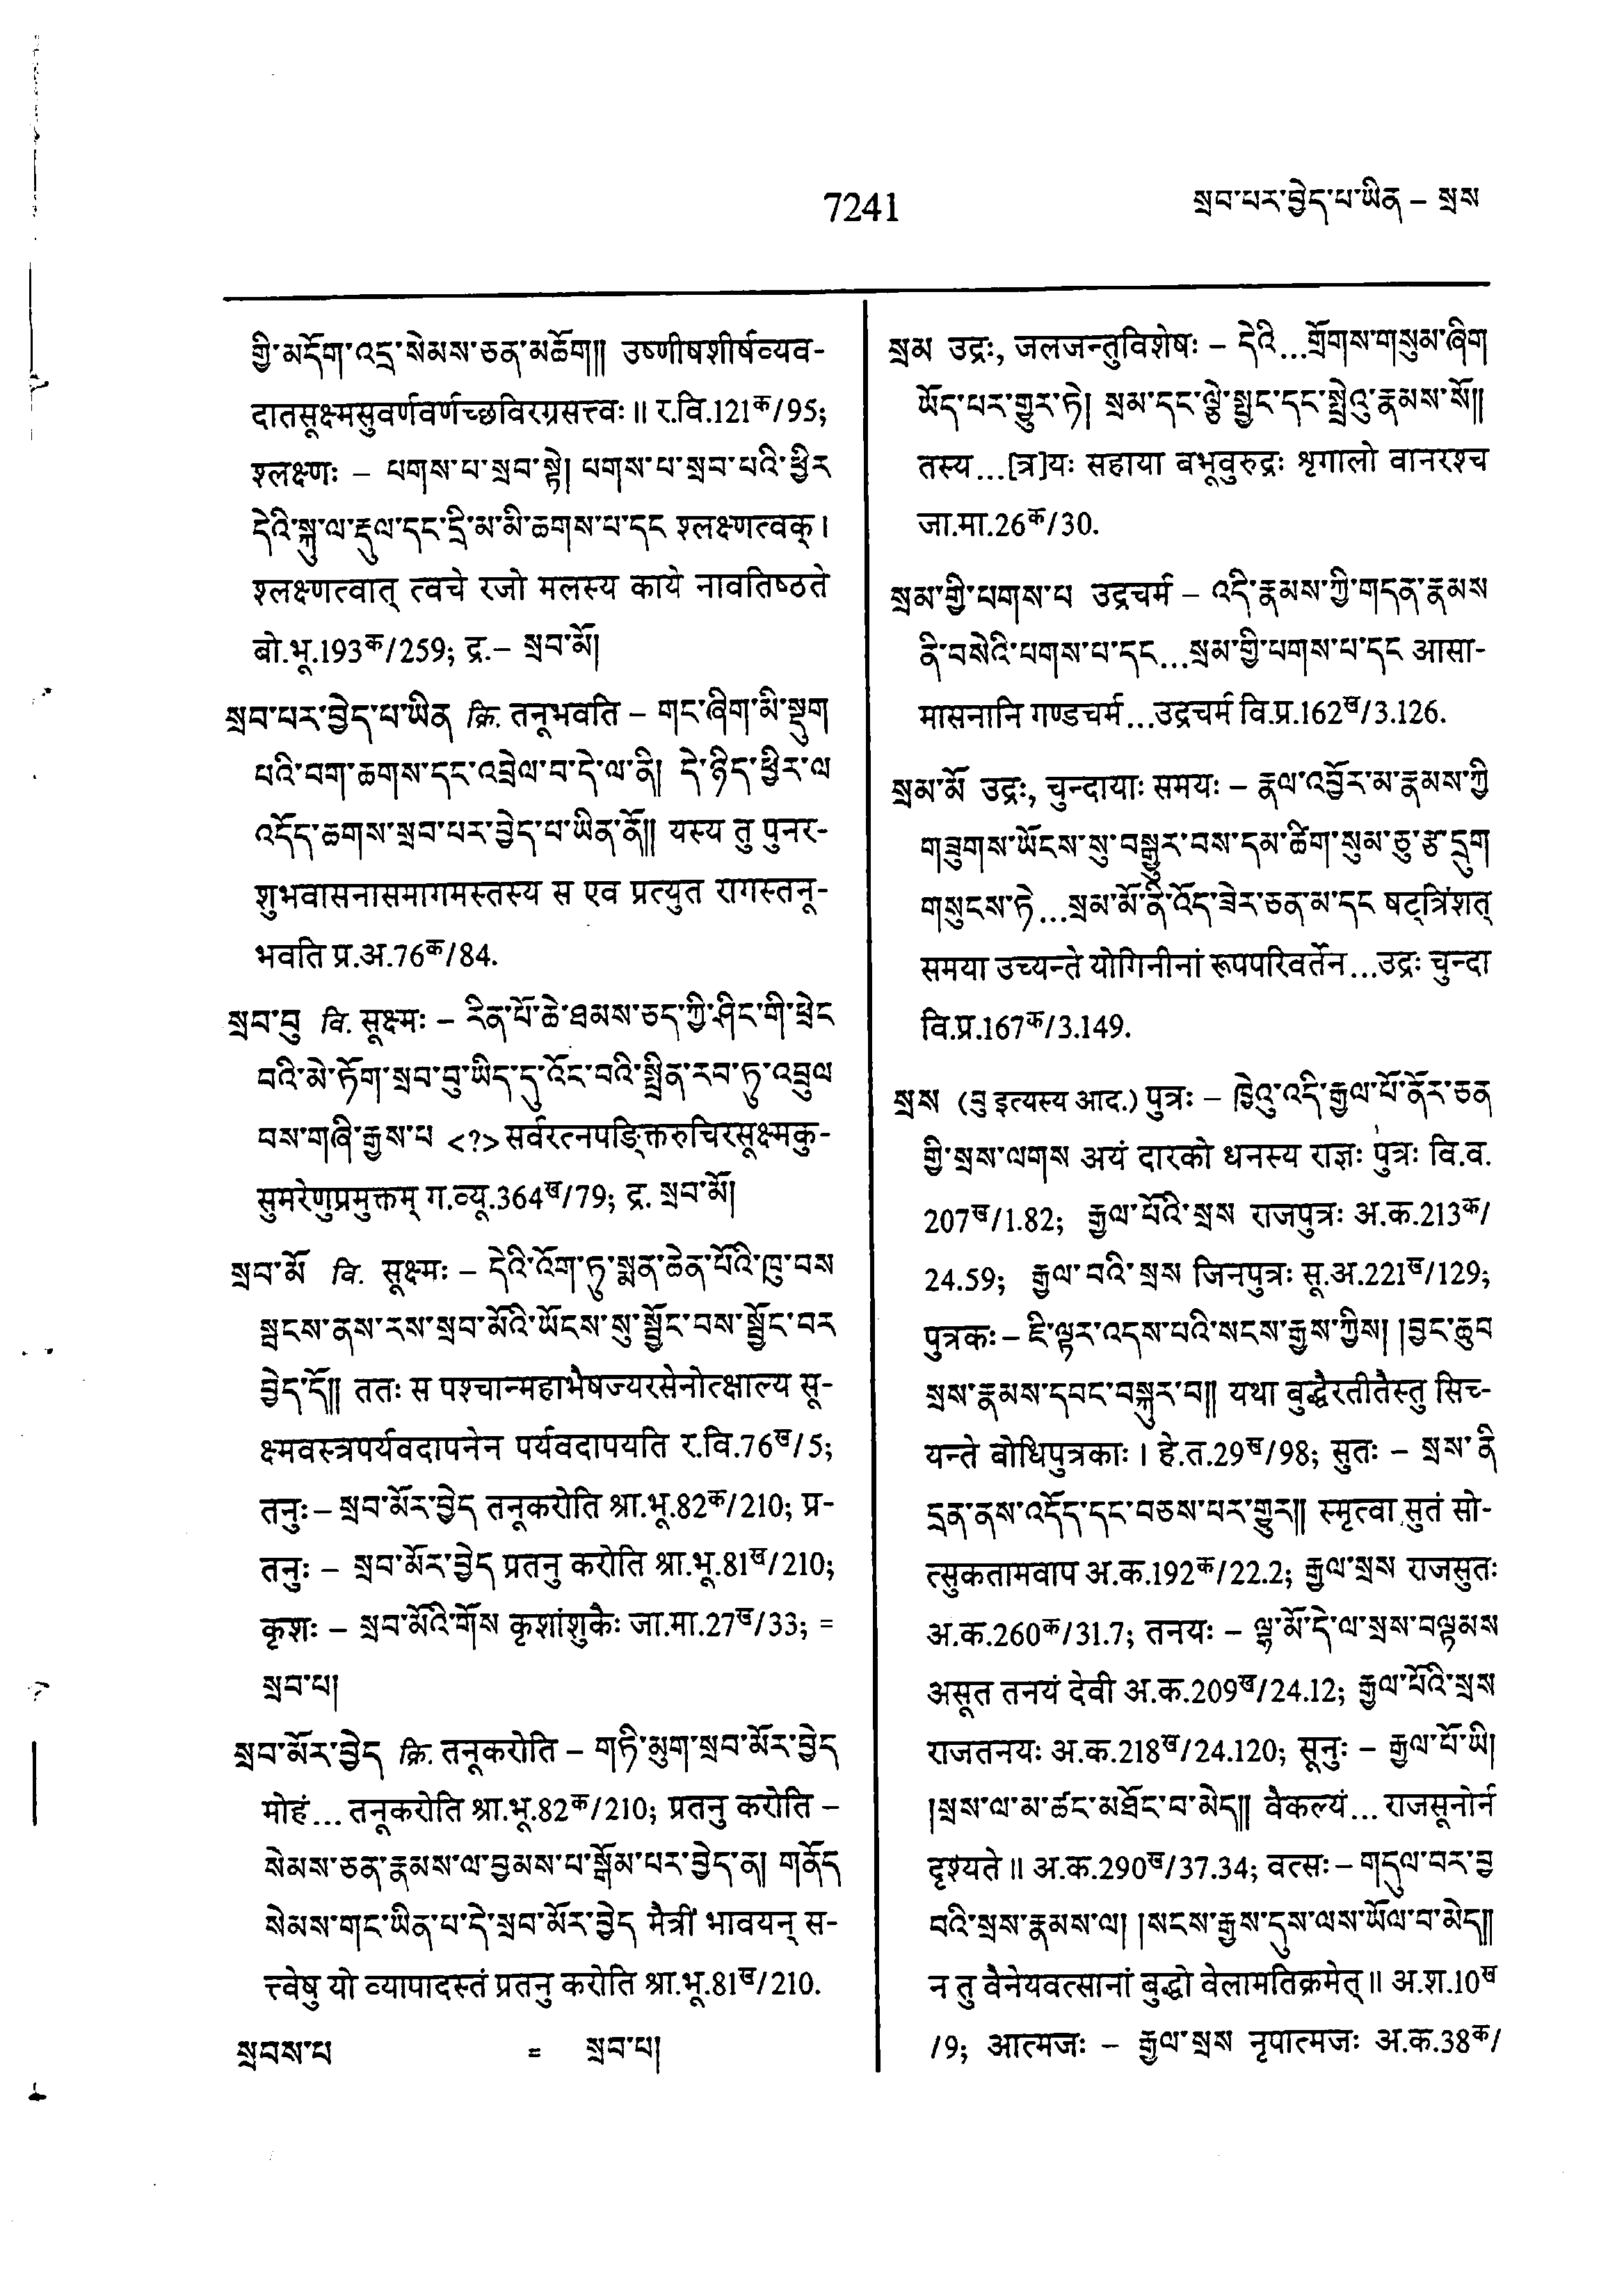 7241
སྲབ་པར་བྱེད་པ་ཡིན – སྲས
གྱི་མདོག་འདྲ་སེམས་ཅན་མཆོག།། उष्णीषशीर्षव्यव-
दातसूक्ष्मसुवर्णवर्णच्छविरग्रसत्त्वः ॥ र.वि.121क/95;
श्लक्ष्णः – པགས་པ་སྲབ་སྟེ། པགས་པ་སྲབ་པའི་ཕྱིར
དེའི་སྐུ་ལ་རྡུལ་དང་དྲི་མ་མི་ཆགས་པ་དང श्लक्ष्णत्वक् ।
श्लक्ष्णत्वात् त्वचे रजो मलस्य काये नावतिष्ठते
बो.भू.193क/259; द्र.– སྲབ་མོ།
སྲབ་པར་བྱེད་པ་ཡིན क्रि. तनूभवति – གང་ཞིག་མི་སྡུག
པའི་བག་ཆགས་དང་འབྲེལ་བ་དེ་ལ་ནི། དེ་ཉིད་ཕྱིར་ལ
འདོད་ཆགས་སྲབ་པར་བྱེད་པ་ཡིན་ནོ།། यस्य तु पुनर-
शुभवासनासमागमस्तस्य स एव प्रत्युत रागस्तनू-
भवति प्र.अ.76क/84.
སྲབ་བུ वि. सूक्ष्मः – རིན་པོ་ཆེ་ཐམས་ཅད་ཀྱི་ཤིང་གི་ཕྲེང
བའི་མེ་ཏོག་སྲབ་བུ་ཡིད་དུ་འོང་བའི་སྤྲིན་རབ་ཏུ་འབྲུལ
བས་གཞི་རྒྱས་པ <?> सर्वरत्नपङ्क्तिरुचिरसूक्ष्मकु-
सुमरेणुप्रमुक्तम् ग.व्यू.364ख/79; द्र. སྲབ་མོ།
སྲབ་མོ वि. सूक्ष्मः – དེའི་འོག་ཏུ་སྨན་ཆེན་པོའི་ཁུ་བས
སྦངས་ནས་རས་སྲབ་མོའི་ཡོངས་སུ་སྦྱོང་བས་སྦྱོང་བར
བྱེད་དོ།། ततः स पश्चान्महाभैषज्यरसेनोत्क्षाल्य सू-
क्ष्मवस्त्रपर्यवदापनेन पर्यवदापयति र.वि.76ख/5;
तनुः – སྲབ་མོར་བྱེད तनूकरोति श्रा.भू.82क/210; प्र-
तनुः – སྲབ་མོར་བྱེད प्रतनु करोति श्रा.भू.81ख/210;
कृशः – སྲབ་མོའི་གོས कृशांशुकैः जा.मा.27ख/33; =
སྲབ་པ།
སྲབ་མོར་བྱེད क्रि. तनूकरोति – གཏི་མུག་སྲབ་མོར་བྱེད
मोहं... तनूकरोति श्रा.भू.82क/210; प्रतनु करोति –
སེམས་ཅན་རྣམས་ལ་བྱམས་པ་སྒོམ་པར་བྱེད་ན། གནོད
སེམས་གང་ཡིན་པ་དེ་སྲབ་མོར་བྱེད मैत्रीं भावयन् स-
त्त्वेषु यो व्यापादस्तं प्रतनु करोति श्रा.भू.81ख/210.
སྲབས་པ = སྲབ་པ།
སྲམ उद्रः, जलजन्तुविशेषः – དེའི...གྲོགས་གསུམ་ཞིག
ཡོད་པར་གྱུར་ཏེ། སྲམ་དང་ལྕེ་སྤྱང་དང་སྤྲེའུ་རྣམས་སོ།།
तस्य...[त्र]यः सहाया बभूवुरुद्रः शृगालो वानरश्च
जा.मा.26क/30.
སྲམ་གྱི་པགས་པ उद्रचर्म – འདི་རྣམས་ཀྱི་གདན་རྣམས
ནི་བསེའི་པགས་པ་དང...སྲམ་གྱི་པགས་པ་དང आसा-
मासनानि गण्डचर्म...उद्रचर्म वि.प्र.162ख/3.126.
སྲམ་མོ उद्रः, चुन्दायाः समयः – རྣལ་འབྱོར་མ་རྣམས་ཀྱི
གཟུགས་ཡོངས་སུ་བསྒྱུར་བས་དམ་ཚིག་སུམ་ཅུ་རྩ་དྲུག
གསུངས་ཏེ...སྲམ་མོ་ནི་འོད་ཟེར་ཅན་མ་དང षट्त्रिंशत्
समया उच्यन्ते योगिनीनां रूपपरिवर्तेन...उद्रः चुन्दा
वि.प्र.167क/3.149.
སྲས (བུ इत्यस्य आद.) पुत्रः – ཁྱེའུ་འདི་རྒྱལ་པོ་ནོར་ཅན
གྱི་སྲས་ལགས अयं दारको धनस्य राज्ञः पुत्रः वि.व.
207ख/1.82; རྒྱལ་པོའི་སྲས राजपुत्रः अ.क.213क/
24.59; རྒྱལ་བའི་སྲས जिनपुत्रः सू.अ.221ख/129;
पुत्रकः – ཇི་ལྟར་འདས་པའི་སངས་རྒྱས་ཀྱིས། །བྱང་ཆུབ
སྲས་རྣམས་དབང་བསྐུར་བ།། यथा बुद्धैरतीतैस्तु सिच्-
यन्ते बोधिपुत्रकाः । हे.त.29ख/98; सुतः – སྲས་ནི
དྲན་ནས་འདོད་དང་བཅས་པར་གྱུར།། स्मृत्वा सुतं सो-
त्सुकतामवाप अ.क.192क/22.2; རྒྱལ་སྲས राजसुतः
अ.क.260क/31.7; तनयः – ལྷ་མོ་དེ་ལ་སྲས་བལྟམས
असूत तनयं देवी अ.क.209ख/24.12; རྒྱལ་པོའི་སྲས
राजतनयः अ.क.218ख/24.120; सूनुः – རྒྱལ་པོ་ཡི།
།སྲས་ལ་མ་ཚང་མཐོང་བ་མེད།། वैकल्यं... राजसूनोर्न
दृश्यते ॥ अ.क.290ख/37.34; वत्सः – གདུལ་བར་བྱ
བའི་སྲས་རྣམས་ལ། །སངས་རྒྱས་དུས་ལས་ཡོལ་བ་མེད།།
न तु वैनेयवत्सानां बुद्धो वेलामतिक्रमेत् ॥ अ.श.10ख
/9; आत्मजः – རྒྱལ་སྲས नृपात्मजः अ.क.38क/